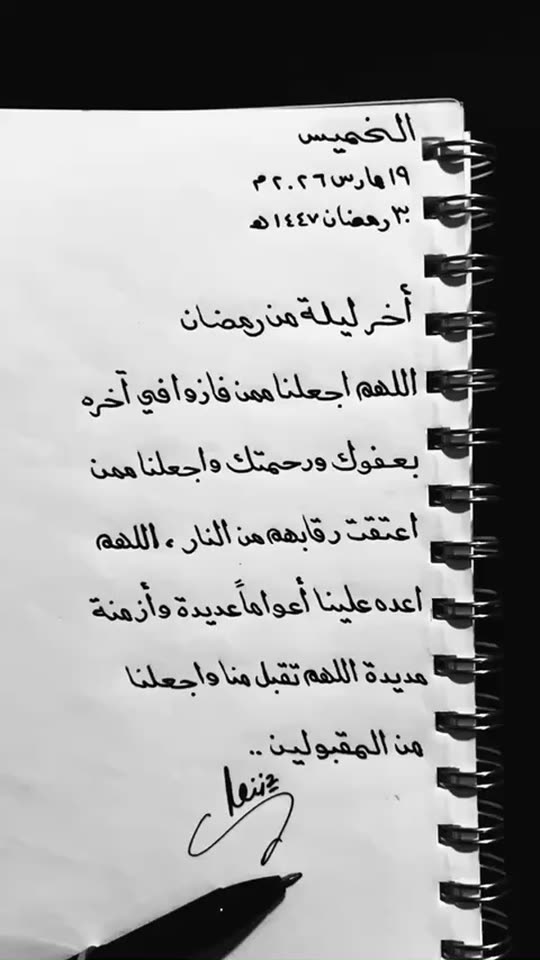 الخميس
١٩ مارس ٢٠٢٦ م
٣٠ رمضان ١٤٤٧ هـ
أخر ليلة من رمضان
اللهم اجعلنا ممن فازوا في آخره
بعفوك ورحمتك واجعلنا ممن
اعتقت رقابهم من النار ، اللهم
اعده علينا أعواماً عديدة وأزمنة
مديدة اللهم تقبل منا واجعلنا
من المقبولين ..